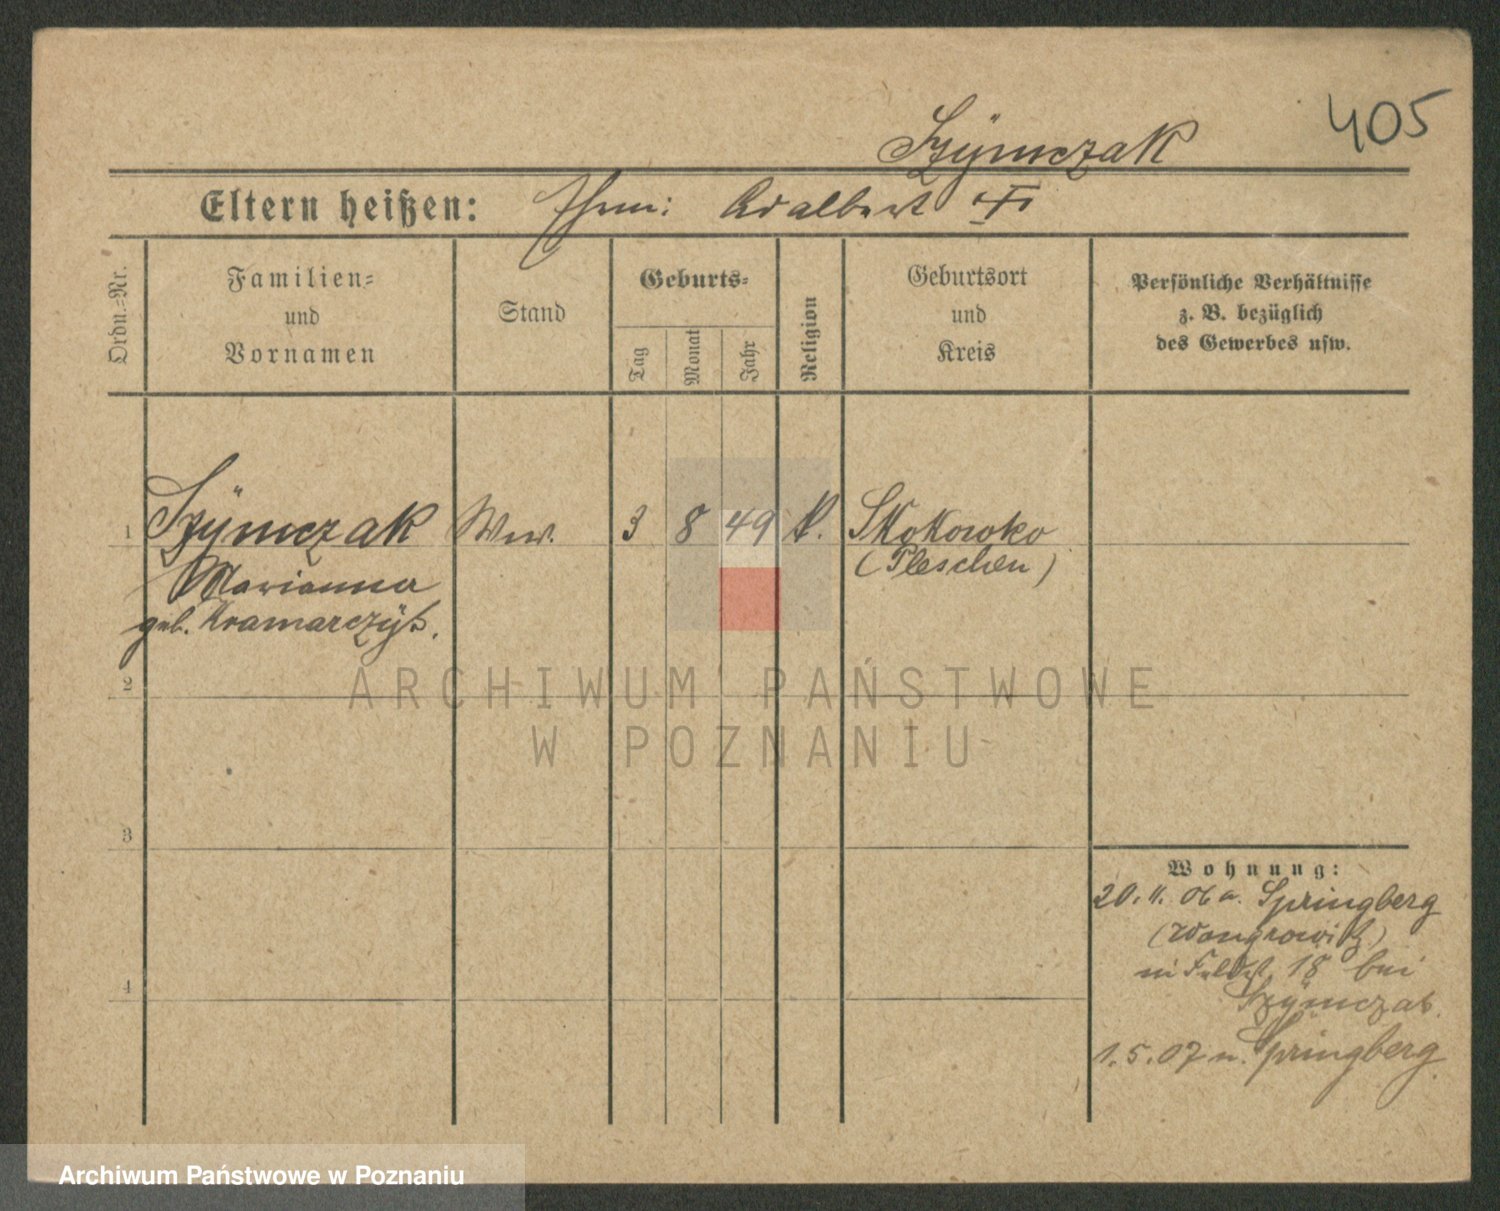 405
Szÿmczak
Eltern heißen: Ehem: Adalbert †
Ordn.=Nr.
Familien=
und
Vornamen
Stand
Geburts=
Tag
Monat
Jahr
Religion
Geburtsort
und
Kreis
Persönliche Verhältnisse
z. B. bezüglich
des Gewerbes usw.
1 Szÿmczak Ww. 3 8 49 k. Skokowko
Marianna (Pleschen)
geb. Kramarczÿk.
2
3
4
Wohnung:
20. 11. 06 a. Springberg
(Wongrowitz)
18 bei
Szÿmczak.
1.5.07 n. Springberg.
ARCHIWUM PAŃSTWOWE
W POZNANIU
Archiwum Państwowe w Poznaniu